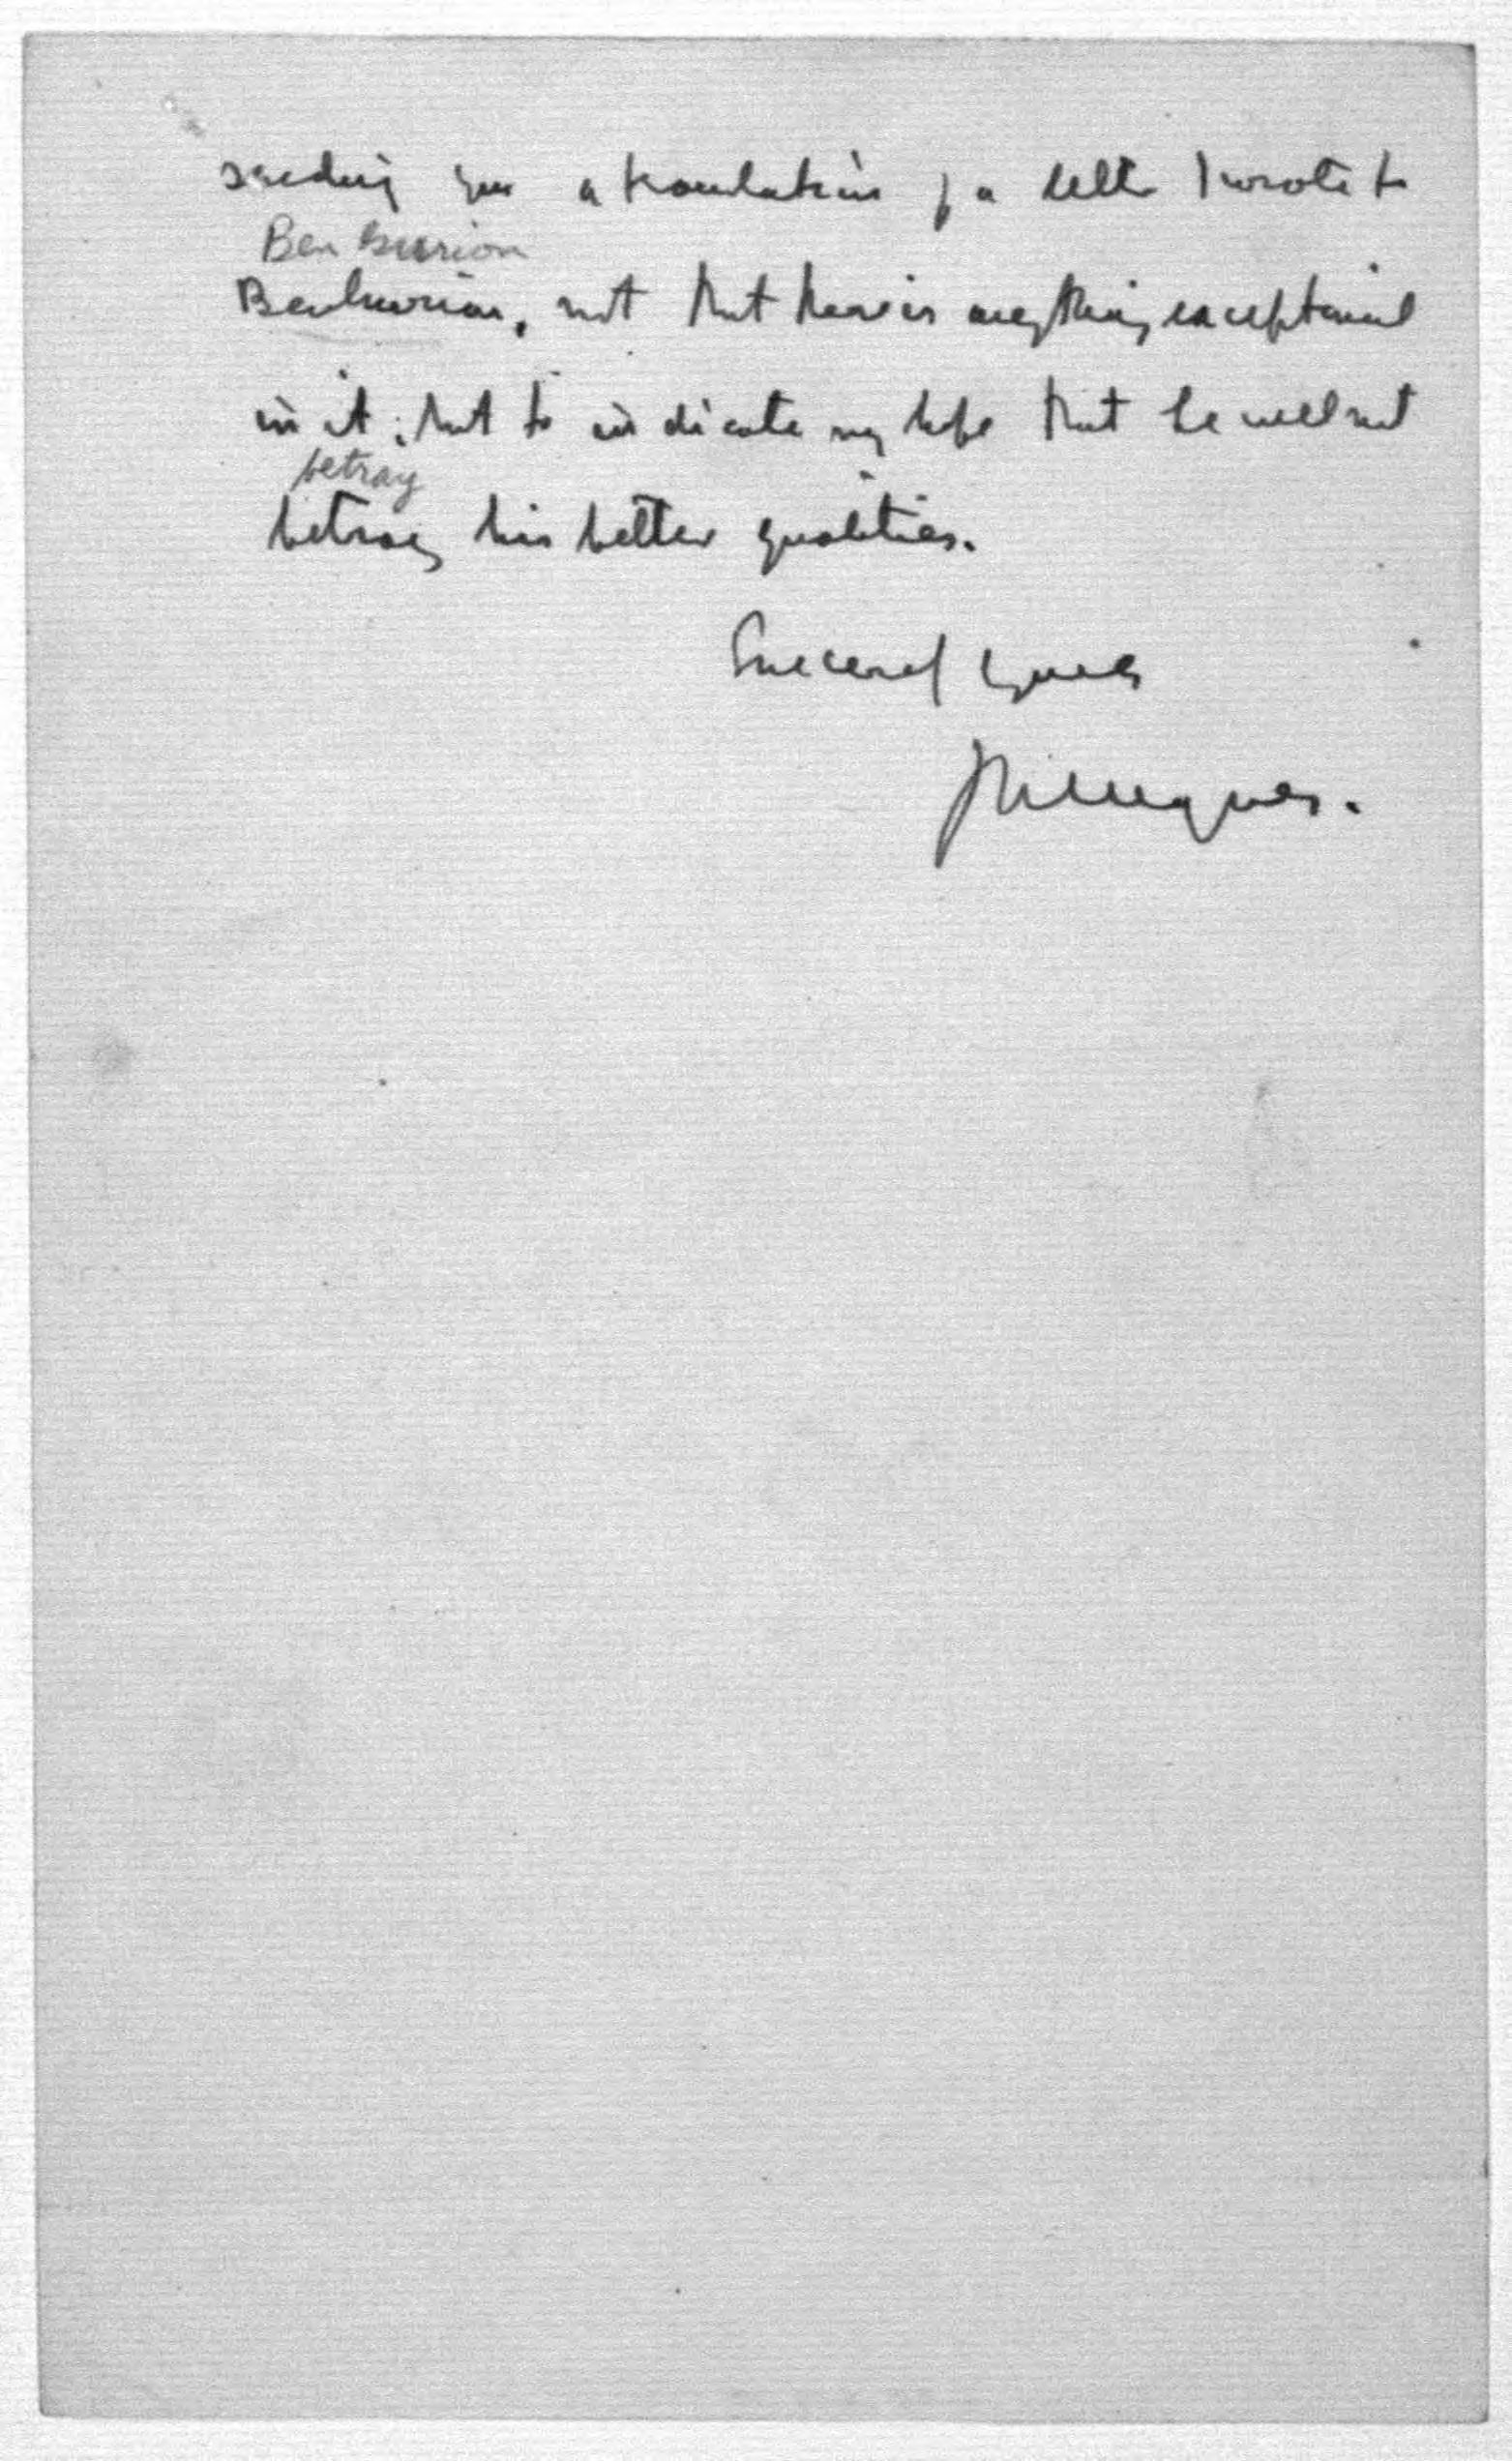 sending you a translation of a letter I wrote to
Ben Gurion
Ben Gurion, not that there is anything exceptional
in it; but to indicate my hope that he will not
betray
betray his better qualities.
Sincerely yours
JLMagnes.